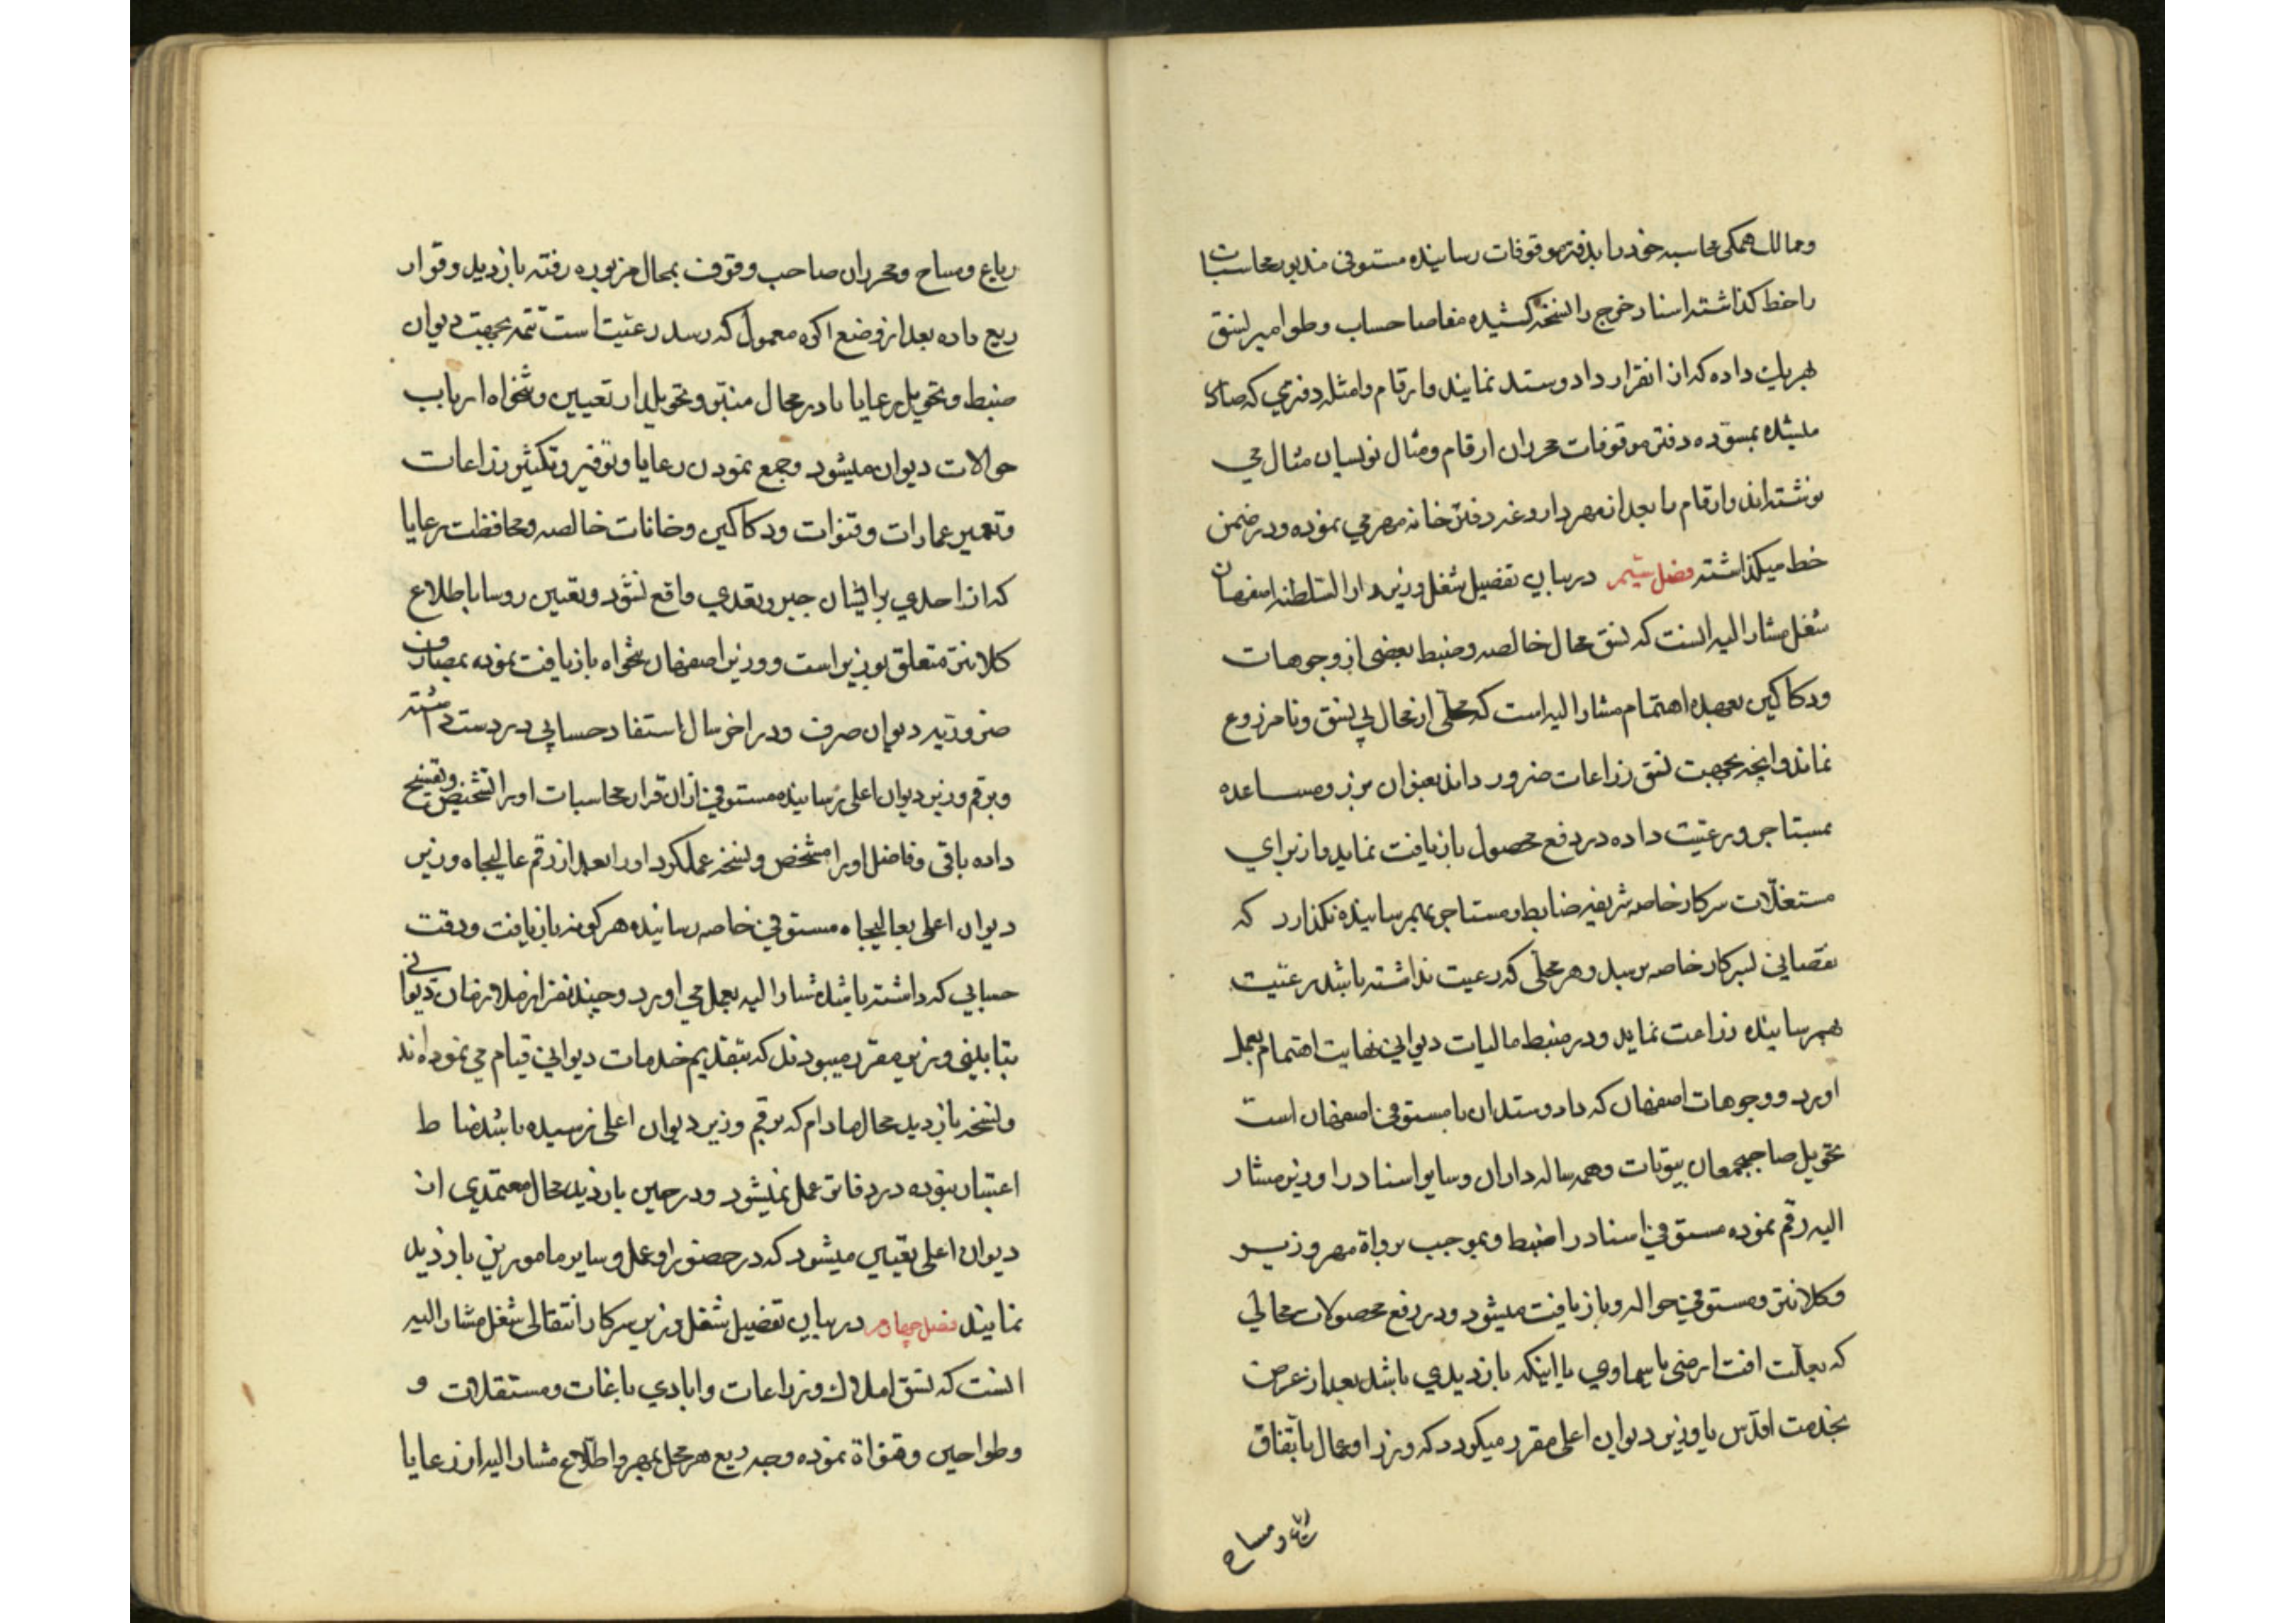 وممالك همكی محاسبه خود را بدفتر موقوفات رسانیده مستوفی مذبور محاسبات
را خط كذاشته اسناد خرج را نسخه كشیده مفاصا حساب و طوامیر نسق
بهریك داده كه از انقرار داد و ستد نمایند و ارقام و امثله دفتری كه صادر
میشده بمسوده دفتر موقوفات محرران ارقام و مثال نویسان مثال می
نوشته اند و ارقام را بعد از مهر داروغه دفتر خانه مهر می نموده و در ضمن
خط میكذاشته فصل سیم در بیان تفصیل شغل وزیر دار السلطنه اصفهان
شغل مشار الیه انست كه نسق محال خالصه و ضبط بعضی از وجوهات
و دكاكین بعهده اهتمام مشار الیه است كه محلی از محال بی نسق و نامزروع
نماند و انچه بجهت نسق زراعات ضرور داند بعنوان بذر و مساعده
بمستاجر و رعیت داده در رفع محصول بازیافت نماید و از برای
مستغلّات سركار خاصه شریفه ضابط و مستاجر بهم رسانیده نكذارد كه
نقصانی بسركار خاصه برسد و هر محلّی كه رعیت نداشته باشد رعیّت
بهم رسانیده زراعت نماید و در ضبط مالیات دیوانی نهایت اهتمام بعمل
اورد و وجوهات اصفهان كه داد و ستد ان با مستوفی اصفهان است
تحویل صاحبجمعان بیوتات و همه ساله داران و سایر اسناد را وزیر مشار
الیه رقم نموده مستوفی اسناد را ضبط و بموجب برواة مهر وزیر
و كلانتر و مستوفی حواله و بازیافت میشود و در رفع محصولات محالی
كه بعلّت افت ارضی یا سماوی یا اینكه بازدیدی باشد بعد از عرض
بخدمت اقدس یا وزیر دیوان اعلی مقرر میكردد كه وزرا و عمال باتفاق
رباع و مساح
رباع و مساح و محرران صاحب وقوف بمحال مزبوره رفته بازدید و قرار
ریع داده بعد از وضع اكره معمول كه رسد رعیت است تتمه بجهت دیوان
ضبط و تحویل رعایا یا در محال منبّر و تحویلدار تعیین و تنخواه ارباب
حوالات دیوان میشود و جمع نمودن رعایا و توفیر و تكثیر زراعات
و تعمیر عمارات و قنوات و دكاكین و خانات خالصه و محافظت رعایا
كه از احدی برایشان جبر و تعدی واقع نشود و تعیین روسا باطلاع
كلانتر متعلق بوزیر است و وزیر اصفهان تنخواه بازیافت نموده بمصارف
ضروریه دیوان صرف و در اخر سال استفاد حسابی در دست داشته
و برقم وزیر دیوان اعلی رسانیده مستوفی از ان قرار محاسبات او را تشخیص و تنقیح
داده باقی و فاضل او را مشخص و نسخه عملكرد او را بعد از رقم عالیجاه وزیر
دیوان اعلی بعالیجاه مستوفی خاصه رسانیده هر كونه بازیافت و دقت
حسابی كه داشته باشد مشار الیه بعمل می اورد و چند نفر از ملازمان دیوانی
بتابینی وزیر مقرر میبودند كه بتقدیم خدمات دیوانی قیام می نموده اند
و نسخه بازدید محال مادام كه برقم وزیر دیوان اعلی نرسیده باشد مناط
اعتبار نبوده در دفاتر عمل نمیشود و در حین بازدید محال معتمدی از
دیوان اعلی تعیین میشود كه در حضور او عمل و سایر مامورین بازدید
نمایند فصل چهارم در بیان تفصیل شغل وزیر سركار انتقالی شغل مشار الیه
انست كه نسق املاك و زراعات و ابادی باغات و مستقلات و
و طواحین و قنواة نموده وجه ریع هر محل بمهر و اطلاع مشار الیه از رعایا